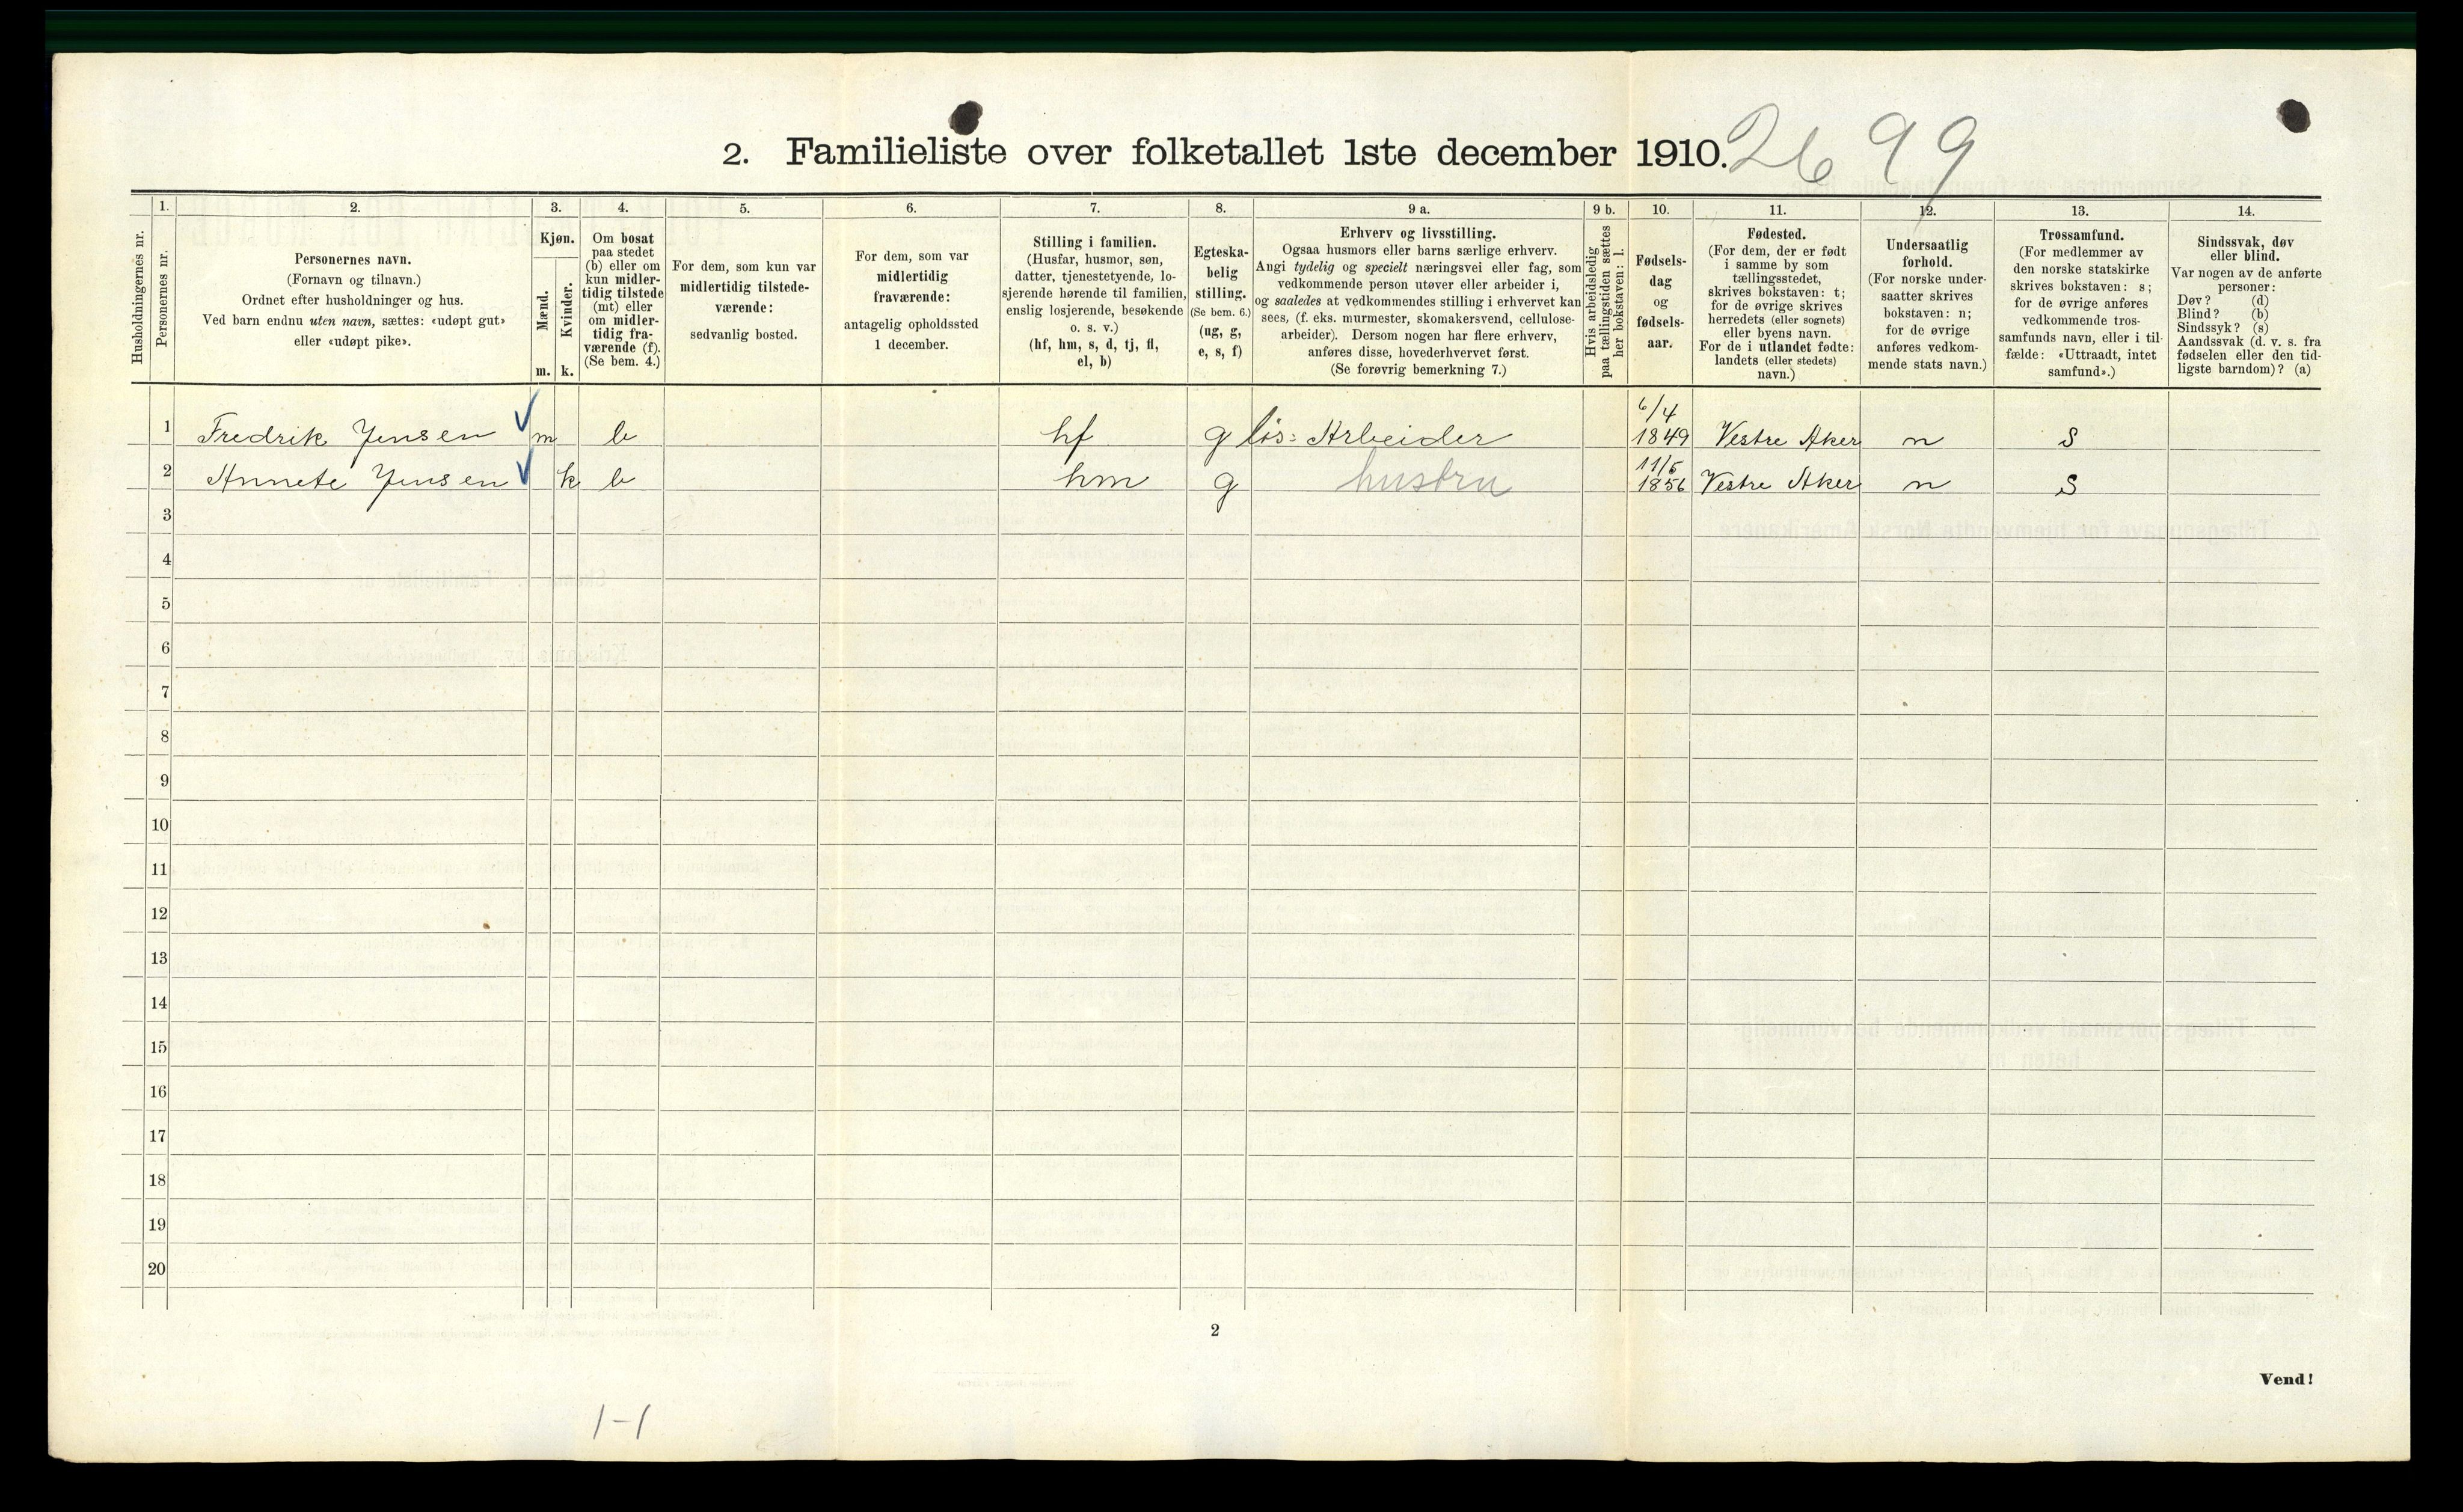 2. Familieliste over folketallet 1ste december 1910. 2699
Husholdningernes nr.
1.
Personernes nr.
2.
Personernes navn.
(Fornavn og tilnavn.)
Ordnet efter husholdninger og hus.
Ved barn endnu uten navn, sættes: «udøpt gut»
eller «udøpt pike».
3.
Kjøn.
Mænd.
Kvinder.
m. k.
4.
Om bosat
paa stedet
(b) eller om
kun midler-
tidig tilstede
(mt) eller
om midler-
tidig fra-
værende (f).
(Se bem. 4.)
5.
For dem, som kun var
midlertidig tilstede-
værende:
sedvanlig bosted.
6.
For dem, som var
midlertidig
fraværende:
antagelig opholdssted
1 december.
7.
Stilling i familien.
(Husfar, husmor, søn,
datter, tjenestetyende, lo-
sjerende hørende til familien,
enslig losjerende, besøkende
o. s. v.)
(hf, hm, s, d, tj, fl,
el, b)
8.
Egteska-
belig
stilling.
(Se bem. 6.)
(ug, g,
e, s, f)
9 a.
Erhverv og livsstilling.
Ogsaa husmors eller barns særlige erhverv.
Angi tydelig og specielt næringsvei eller fag, som
vedkommende person utøver eller arbeider i,
og saaledes at vedkommendes stilling i erhvervet kan
sees, (f. eks. murmester, skomakersvend, cellulose-
arbeider). Dersom nogen har flere erhverv,
anføres disse, hovederhvervet først.
(Se forøvrig bemerkning 7.)
9 b.
Hvis arbeidsledig
paa tællingstiden sættes
her bokstaven: l.
10.
Fødsels-
dag
og
fødsels-
aar.
11.
Fødested.
(For dem, der er født
i samme by som
tællingsstedet,
skrives bokstaven: t;
for de øvrige skrives
herredets (eller sognets)
eller byens navn.
For de i utlandet fødte:
landets (eller stedets)
navn.)
12.
Undersaatlig
forhold.
(For norske under-
saatter skrives
bokstaven: n;
for de øvrige
anføres vedkom-
mende stats navn.)
13.
Trossamfund.
(For medlemmer av
den norske statskirke
skrives bokstaven: s;
for de øvrige anføres
vedkommende tros-
samfunds navn, eller i til-
fælde: «Uttraadt, intet
samfund».)
14.
Sindssvak, døv
eller blind.
Var nogen av de anførte
personer:
Døv? (d)
Blind? (b)
Sindssyk? (s)
Aandssvak (d. v. s. fra
fødselen eller den tid-
ligste barndom)? (a)
6/4
1 Fredrik Jensen m b hf g løs: Arbeider 1849 Vestre Aker n s
11/5
2 Annete Jensen k b hm g hustru 1856 Vestre Aker n s
3
4
5
6
7
8
9
10
11
12
13
14
15
16
17
18
19
20
2
Vend!
1-1